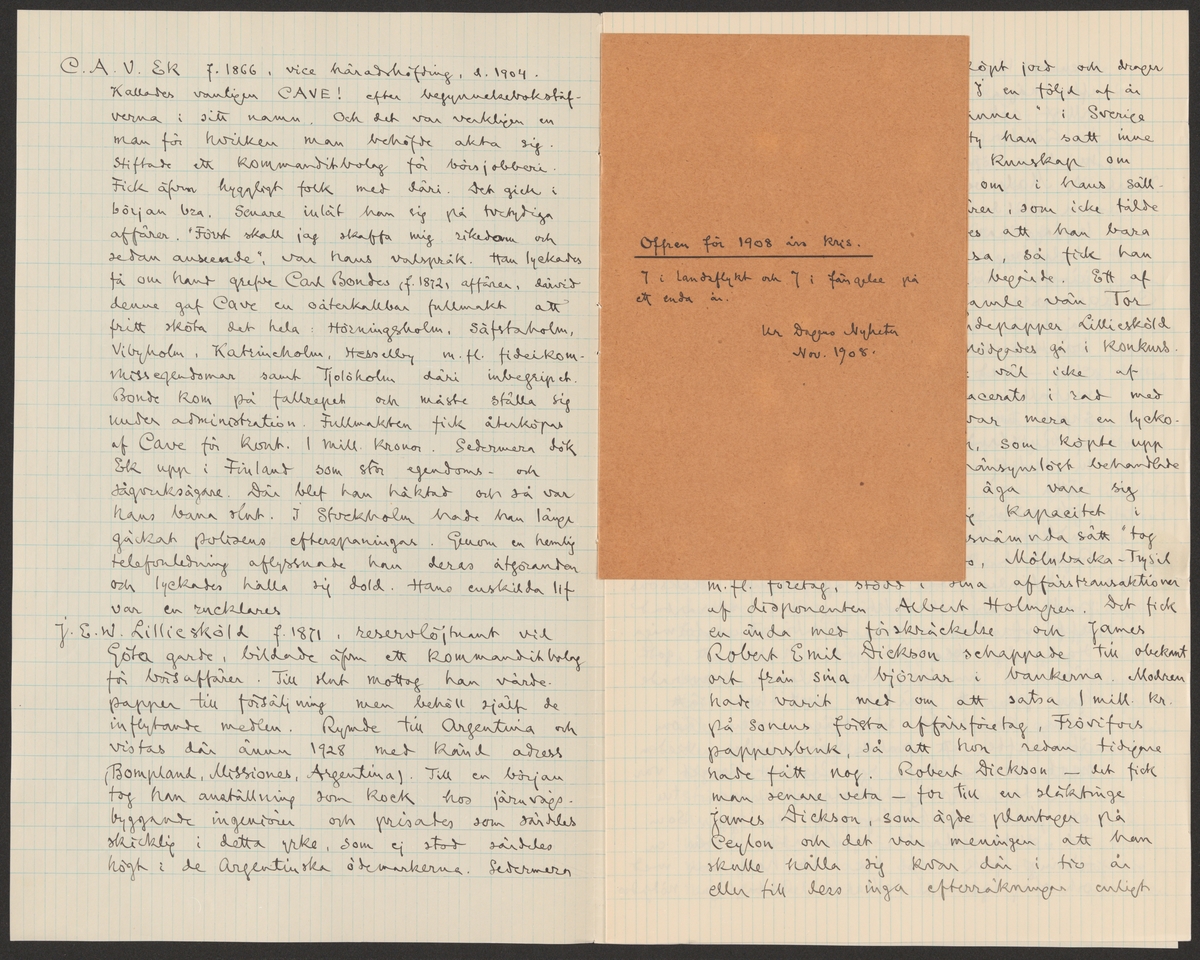 C. A. V. Ek f. 1866, vice häradshöfding, d. 1904.
Kallades vanligen CAVE! efter begynnelsebokstäf-
verna i sitt namn. Och det var verkligen en
man för hvilken man behöfde akta sig.
Stiftade ett kommanditbolag för börsjobberi.
Fick äfven hyggligt folk med däri. Det gick i
början bra. Senare inlät han sig på tvetydiga
affärer. "Först skall jag skaffa mig rikedom och
sedan anseende", var hans valspråk. Han lyckades
få om hand grefve Carl Bondes (f. 1872) affärer, därvid
denne gaf Cave en oåterkallbar fullmakt att
fritt sköta det hela: Hörningsholm, Säfstaholm,
Vibyholm, Katrineholm, Hesselby m.fl. fideikom-
missegendomar samt Tjolöholm däri inbegripet.
Bonde kom på fallrepet och måste ställa sig
under administration. Fullmakten fick återköpas
af Cave för kont. 1 mill. kronor. Sedermera dök
Ek upp i Finland som stor egendoms- och
sågverksägare. Där blef han häktad och så var
hans bana slut. I Stockholm hade han länge
gäckat polisens efterspaningar. Genom en hemlig
telefonledning aflyssnade han deras åtgöranden
och lyckades hålla sig dold. Hans enskilda lif
var en rucklares
J. E. W. Lilliesköld f. 1871, reservlöjtnant vid
Göta garde, bildade äfven ett kommanditbolag
för börsaffärer. Till slut mottog han värde-
papper till försäljning men behöll själf de
inflytande medlen. Rymde till Argentina och
vistas där ännu 1928 med känd adress
(Bompland, Missiones, Argentina). Till en början
tog han anställning som kock hos järnvägs-
byggande ingeniörer och prisades som särdeles
skicklig i detta yrke, som ej stod särdeles
högt i de Argentinska ödemarkerna. Sedermera
Offren för 1908 års kris.
7 i landsflykt och 7 i fängelse på
ett enda år.
Ur Dagens Nyheter
Nov. 1908.
köpt jord och drager
en följd af år
i Sverige
ty han satt inne
kunskap om
om i hans säll-
som icke tålde
att han bara
så fick han
begärde. Ett af
vän Tor
Lilliesköld
gå i konkurs.
väl icke af
i rad med
var mera en lycko-
som köpte upp
hänsynslöst behandlade
äga vare sig
kapacitet i
sätt "tog
Mölnbacka-Trysil
m.fl. företag, stödd i sina affärstransaktioner
af disponenten Albert Holmgren. Det fick
en ända med förskräckelse och James
Robert Emil Dickson schappade till obekant
ort från sina björnar i bankerna. Modren
hade varit med om att satsa 1 mill. kr.
på sonens första affärsföretag, Frövifors
pappersbruk, så att hon redan tidigare
hade fått nog. Robert Dickson — det fick
man senare veta — for till en släktinge
James Dickson, som ägde plantager på
Ceylon och det var meningen att han
skulle hålla sig kvar där i tio år
eller till dess inga efterräkningar enligt